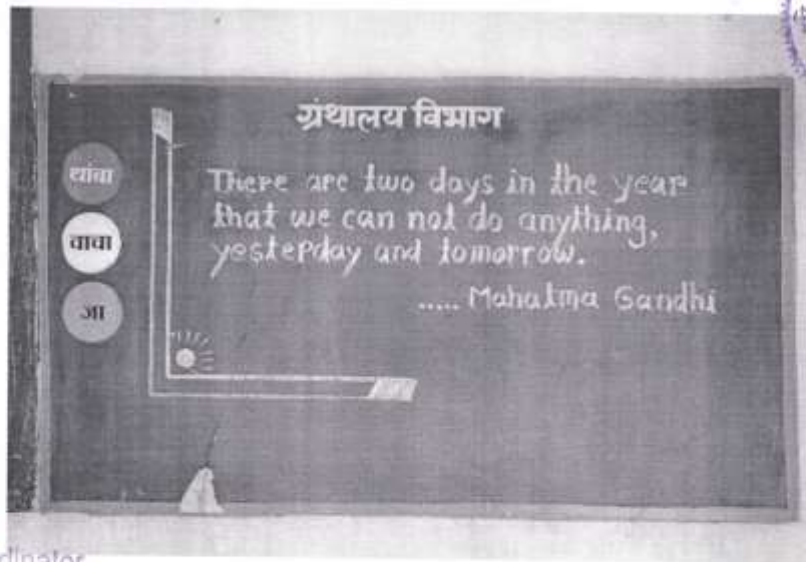 ग्रंथालय विभाग
थांबा
वाचा
जा
There are two days in the year
that we can not do anything,
yesterday and tomorrow.
..... Mahatma Gandhi
dinator